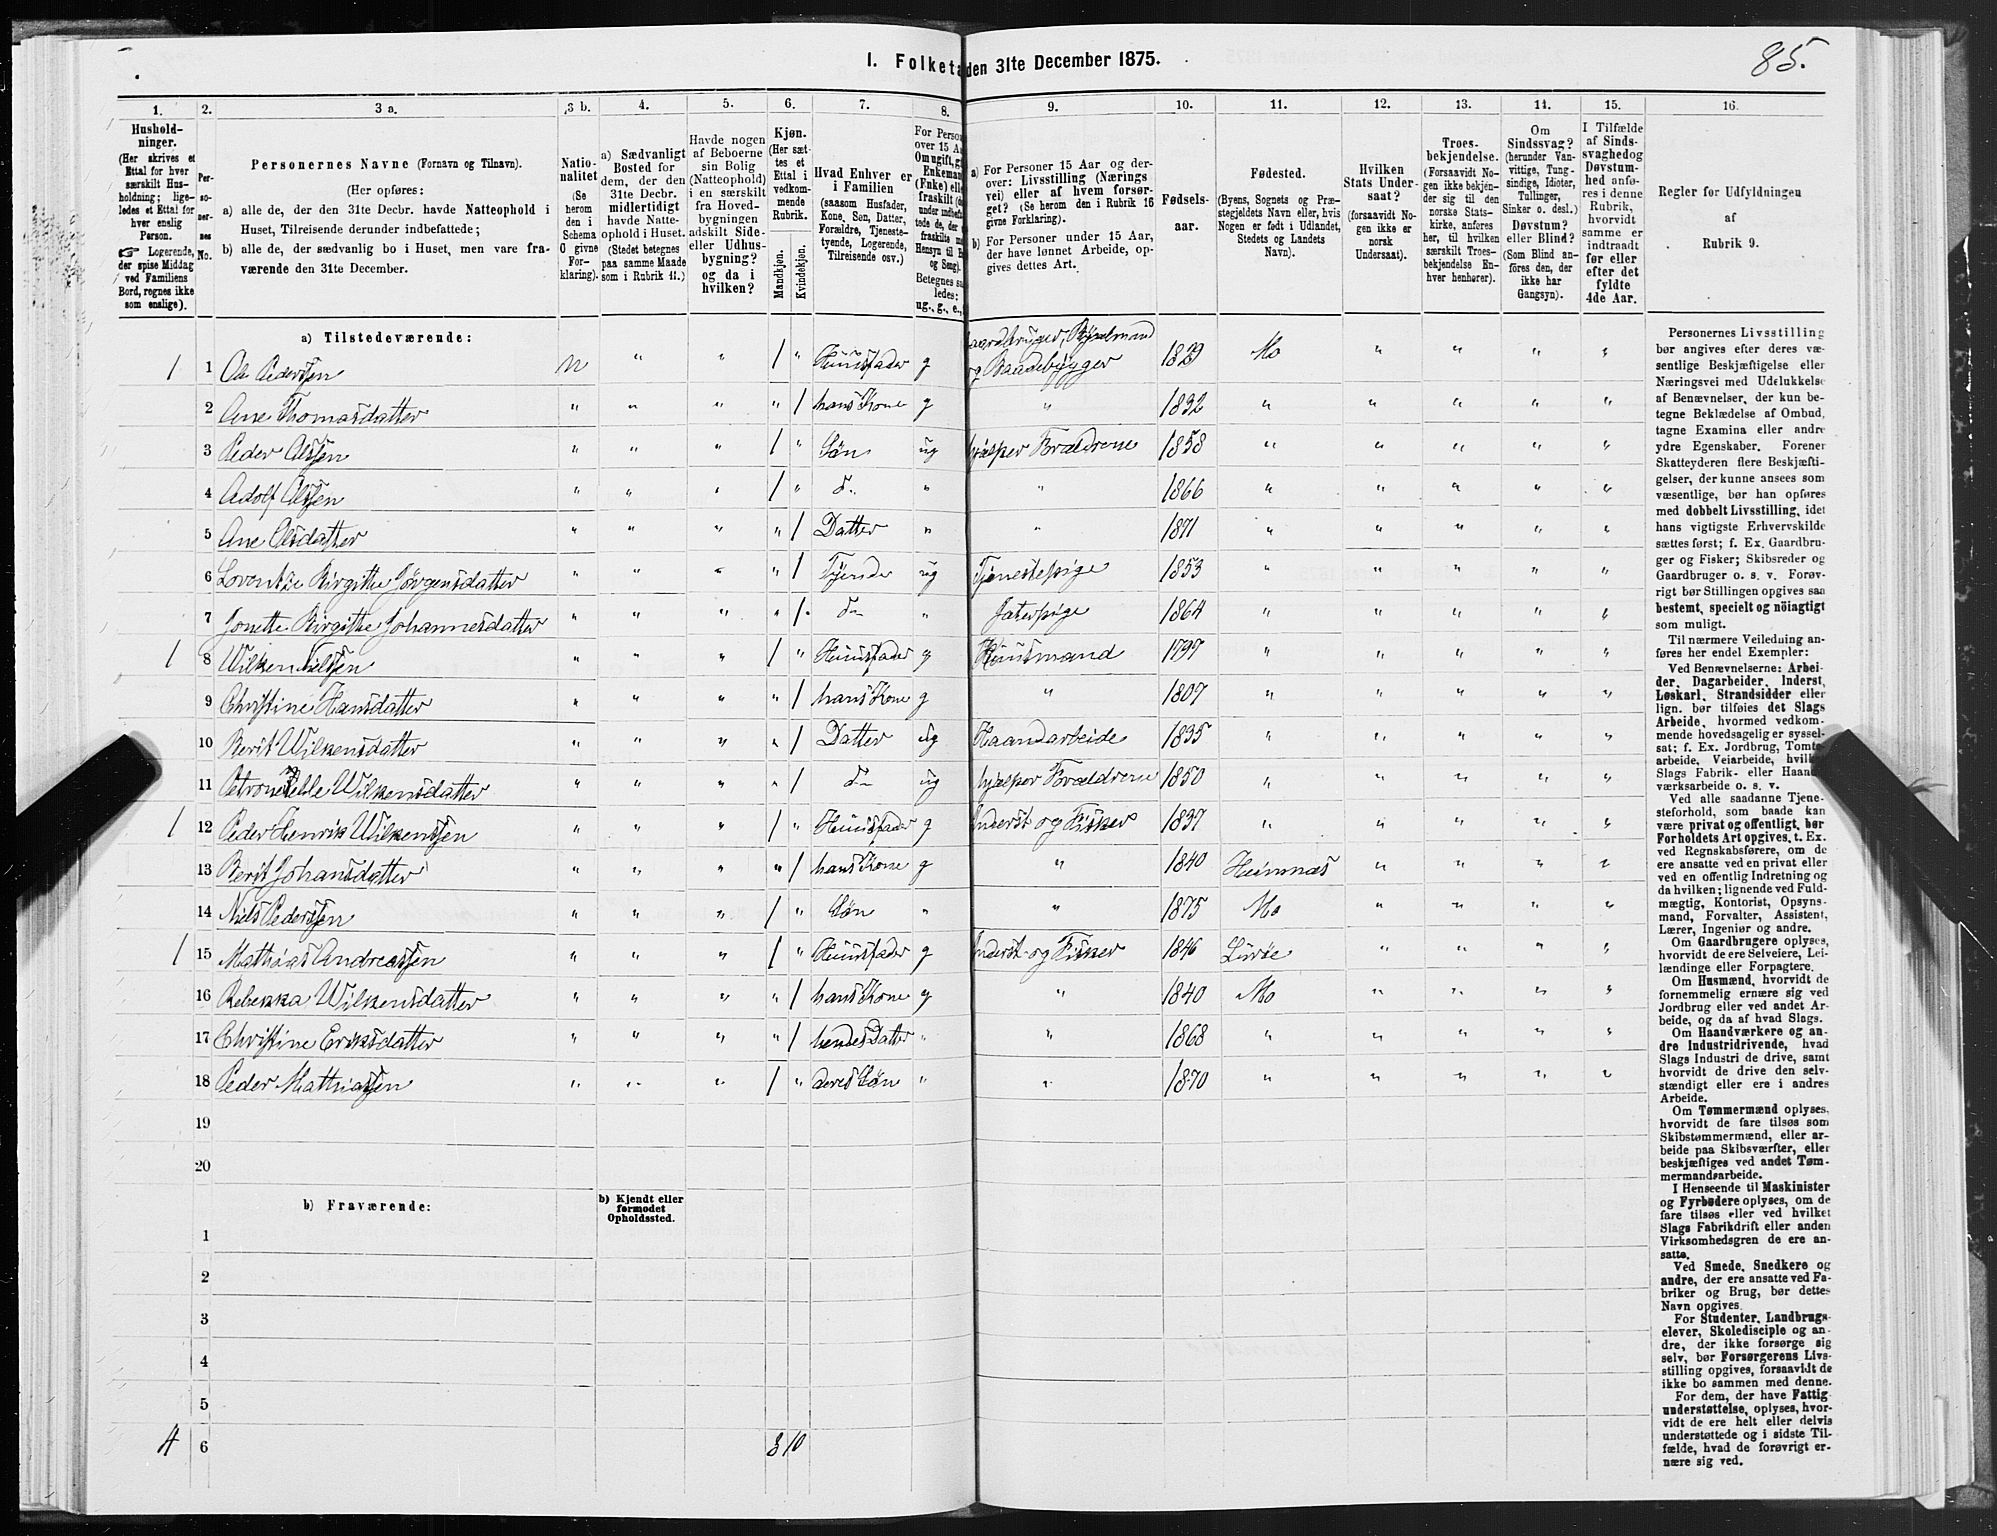 85.
I. Folketa den 31te December 1875.
1. 2. 3 a. 3 b. 4. 5. 6. 7. 8. 9. 10. 11. 12. 13. 14. 15. 16.
Hushold-
ninger.
(Her skrives et
Ettal for hver
særskilt Hus-
holdning; lige-
ledes et Ettal for
hver enslig
Person.
☞ Logerende,
der spise Middag
ved Familiens
Bord, regnes ikke
som enslige).
Per-
so-
ner-
nes
No.
Personernes Navne (Fornavn og Tilnavn).
(Her opføres:
a) alle de, der den 31te Decbr. havde Natteophold i
Huset, Tilreisende derunder indbefattede;
b) alle de, der sædvanlig bo i Huset, men vare fra-
værende den 31te December.
Natio-
nalitet
(Se
herom
den i
Schema
O givne
For-
klaring).
a) Sædvanligt
Bosted for
dem, der den
31te Decbr.
midlertidigt
havde Natte-
ophold i Huset.
(Stedet betegnes
paa samme Maade
som i Rubrik 11.)
Havde nogen
af Beboerne
sin Bolig
(Natteophold)
i en særskilt
fra Hoved-
bygningen
adskilt Side-
eller Udhus-
bygning?
og da i
hvilken?
Kjøn.
(Her sæt-
tes et
Ettal i
vedkom-
mende
Rubrik.
Mandkjøn.
Kvindekjøn.
Hvad Enhver er
i Familien
(saasom Husfader,
Kone, Søn, Datter,
Forældre, Tjeneste-
tyende, Logerende,
Tilreisende osv.)
For Person
over 15 Aa
Om ugift, gi
Enkeman
(Enke) elle
fraskilt (de
under indbefat
tede de, der e
fraskilte m
Hensyn til B
og Seng).
Betegnes sa
ledes:
ug., g., e.,
a) For Personer 15 Aar og der-
over: Livsstilling (Nærings
vei) eller af hvem forsør-
get? (Se herom den i Rubrik 16
givne Forklaring).
b) For Personer under 15 Aar,
der have lønnet Arbeide, op-
gives dettes Art.
Fødsels-
aar.
Fødested.
(Byens, Sognets og Præ-
stegjeldets Navn eller, hvis
Nogen er født i Udlandet,
Stedets og Landets
Navn).
Hvilken
Stats Under-
saat?
(forsaavidt No-
gen ikke er
norsk
Undersaat).
Troes-
bekjendelse.
(Forsaavidt No-
gen ikke bekjen-
der sig til den
norske Stats-
kirke, anføres
her, til hvilken
særskilt Troes-
bekjendelse En-
hver henhører).
Om
Sindssvag?
(herunder Van-
vittige, Tung-
sindige, Idioter,
Tullinger,
Sinker o. desl.)
Døvstum?
eller Blind?
(Som Blind an-
føres den, der
ikke har
Gangsyn).
I Tilfælde
af Sinds-
svaghed og
Døvstum-
hed anfø-
res i denne
Rubrik,
hvorvidt
samme er
indtraadt
før eller
efter det
fyldte
4de Aar.
Regler for Udfyldningen
af
Rubrik 9.
a) Tilstedeværende:
1 1 Ole Pederssen n " " 1 " Huusfader g aardbruger, Bøxelmand og Baadebygger 1829 Mo " " " "
2 Ane Thomasdatter " " " " 1 hans Kone g " 1832 " " " " "
3 Peder Olssen " " " 1 " Søn ug hjælper Forældrene 1858 " " " " "
4 Adolf Olssen " " " 1 " d- " " 1866 " " " " "
5 Ane Olsdatter " " " " 1 Datter " " 1871 " " " " "
6 Lorentse Birgitte Jørgensdatter " " " " 1 Tyende ug Tjenestepige 1853 " " " " "
7 Jonette Birgitte Johannesdatter " " " " 1 d- " Jæterpige 1864 " " " " "
1 8 Wilken Nilssen " " " 1 " Huusfader g Huusmand 1797 " " " " "
9 Christine Hansdatter " " " " 1 hans Kone g " 1807 " " " " "
10 Berit Wilkensdatter " " " " 1 Datter ug Haandarbeide 1835 " " " " "
11 Petronelle Wilkensdatter " " " " 1 d- ug hjælper Forældrene 1850 " " " " "
1 12 Peder Henrik Wilkenssen " " " 1 " Huusfader g Inderst og Fisker 1837 " " " " "
13 Berit Johansdatter " " " " 1 hans Kone g " 1840 Hemnæs " " " "
14 Niels Pederssen " " " 1 " Søn " " 1875 Mo " " " "
1 15 Mathias Andreassen " " " 1 " Huusfader g Inderst og Fisker 1846 Lurøe " " " "
16 Rebekka Wilkensdatter " " " " 1 hans Kone g " 1840 Mo " " " "
17 Christine Eriksdatter " " " " 1 hendes Datter " " 1868 " " " " "
18 Peder Mathiassen " " " 1 " deres Søn " " 1870 " " " " "
19
20
b) Fraværende:
b) Kjendt eller
formodet
Opholdssted.
1
2
3
4
5
4 6 8 10
Personernes Livsstilling
bør angives efter deres væ-
sentlige Beskjæftigelse eller
Næringsvei med Udelukkelse
af Benævnelser, der kun be-
tegne Beklædelse af Ombud,
tagne Examina eller andre
ydre Egenskaber. Forener
Skatteyderen flere Beskjæfti-
gelser, der kunne ansees som
væsentlige, bør han opføres
med dobbelt Livsstilling, idet
hans vigtigste Erhvervskilde
sættes først; f. Ex. Gaardbru-
ger og Fisker; Skibsreder og
Gaardbruger o. s. v. Forøv-
rigt bør Stillingen opgives saa
bestemt, specielt og nöiagtigt
som muligt.
Til nærmere Veiledning an-
føres her endel Exempler:
Ved Benævnelserne: Arbei-
der, Dagarbeider, Inderst,
Løskarl, Strandsidder eller
lign. bør tilføies det Slags
Arbeide, hvormed vedkom-
mende hovedsagelig er syssel-
sat; f. Ex. Jordbrug, Tomte-
arbeide, Veiarbeide, hvilket
Slags Fabrik- eller Haand-
værksarbeide o. s. v.
Ved alle saadanne Tjene-
steforhold, som baade kan
være privat og offentligt, bør
Forholdets Art opgives, t. Ex.
ved Regnskabsførere, om de
ere ansatte ved en privat eller
ved en offentlig Indretning og
da hvilken; lignende ved Fuld-
mægtig, Kontorist, Opsyns-
mand, Forvalter, Assistent,
Lærer, Ingeniør og andre.
Om Gaardbrugere oplyses,
hvorvidt de ere Selveiere, Lei-
lændinge eller Forpagtere.
Om Husmænd, hvorvidt de
fornemmelig ernære sig ved
Jordbrug eller ved andet Ar-
beide, og da af hvad Slags.
Om Haandværkere og an-
dre Industridrivende, hvad
Slags Industri de drive, samt
hvorvidt de drive den selv-
stændigt eller ere i andres
Arbeide.
Om Tømmermænd oplyses,
hvorvidt de fare tilsøs som
Skibstømmermænd, eller ar-
beide paa Skibsværfter, eller
beskjæftiges ved andet Tøm-
mermandsarbeide.
I Henseende til Maskinister
og Fyrbødere oplyses, om de
fare tilsøs eller ved hvilket
Slags Fabrikdrift eller anden
Virksomhedsgren de ere an-
satte.
Ved Smede, Snedkere og
andre, der ere ansatte ved Fa-
briker og Brug, bør dettes
Navn opgives.
For Studenter, Landbrugs-
elever, Skoledisciple og an-
dre, der ikke forsørge sig
selv, bør Forsørgerens Livs-
stilling opgives, forsaavidt de
ikke bo sammen med denne.
For dem, der have Fattig-
understøttelse, oplyses, hvor-
vidt de ere helt eller delvis
understøttede og i sidste Til-
fælde, hvad de forøvrigt er-
nære sig ved.